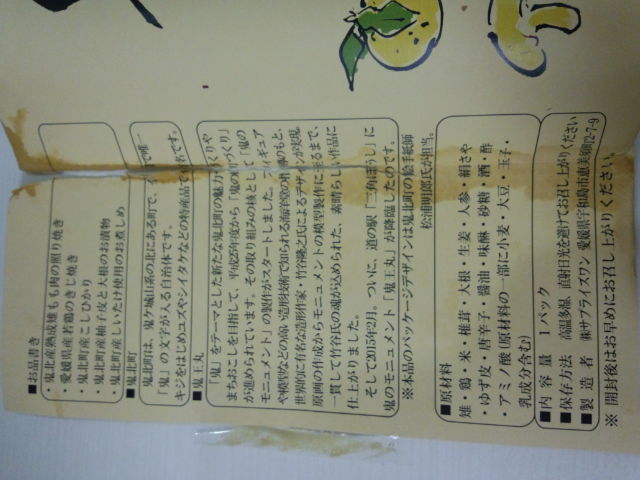 ■お品書き
・鬼北産熟成雉もも肉の照り焼き
・愛媛県産若鶏のきじ焼き
・鬼北町産こしひかり
・鬼北町産柚子皮と大根のお漬物
・鬼北町産しいたけ使用のお煮しめ
■鬼北町
鬼北町は、鬼ケ城山系の北にある町で、 で唯一
「鬼」の文字が入る自治体です。
キジをはじめユズやシイタケなどの特産品で 名です。
■鬼王丸
「鬼」をテーマとした新たな鬼北町の魅力づくりや
まちおこしを目指して、平成25年度から「鬼の町づくり」
が進められています。その取り組みの核として「鬼の
モニュメント」の製作がスタートしました。フィギュア
や模型などの高い造形技術で知られる海洋堂の協 のもと、
世界的に有名な造形作家・竹谷隆之氏によるデザインが実現。
原画の作成からモニュメントの模型製作に至るまで、
一貫して竹谷氏の魂が込められた、素晴らしい作品に
仕上がりました。
そして2015年2月。ついに、道の駅「三角ぼうし」に
鬼のモニュメント「鬼王丸」が降臨したのです。
※本品のパッケージデザインは鬼北町の絵手紙師
松浦明郎氏が担当。
■原材料
雉・鶏・米・椎茸・大根・生姜・人参・絹さや
・ゆず皮・唐辛子・醤油・味醂・砂糖・酒・酢
・アミノ酸(原材料の一部に小麦・大豆・玉子・
乳成分含む)
■内容量 1パック
■保存方法 高温多湿、直射日光を避けてお召し上がりください
■製造者 ㈱サプライズワン 愛媛県宇和島市恵美須町2-7-9
※開封後はお早めにお召し上がりください。